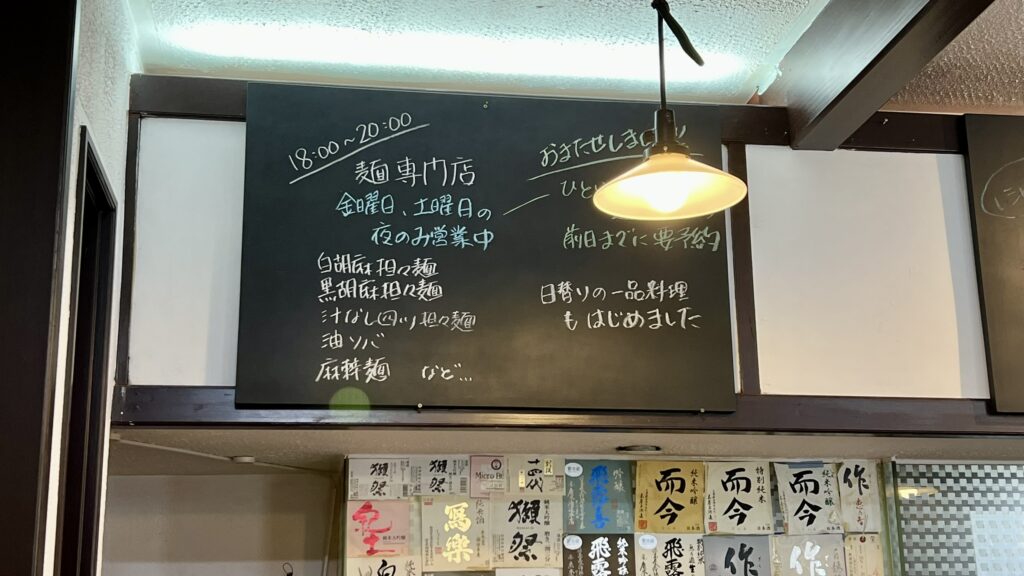 18:00~20:00
麺専門店
金曜日、土曜日の
夜のみ営業中
白胡麻担々麺
黒胡麻担々麺
汁なし四川担々麺
油ソバ
麻辣麺 など...
おまたせしまし
ひと
前日までに要予約
日替りの一品料理
も はじめました
獺祭
獺祭
十四代
飛露喜
純米吟醸
而今
特別純米
而今
純米吟醸
而今
作
寫樂
獺祭
飛露
飛露
作
作